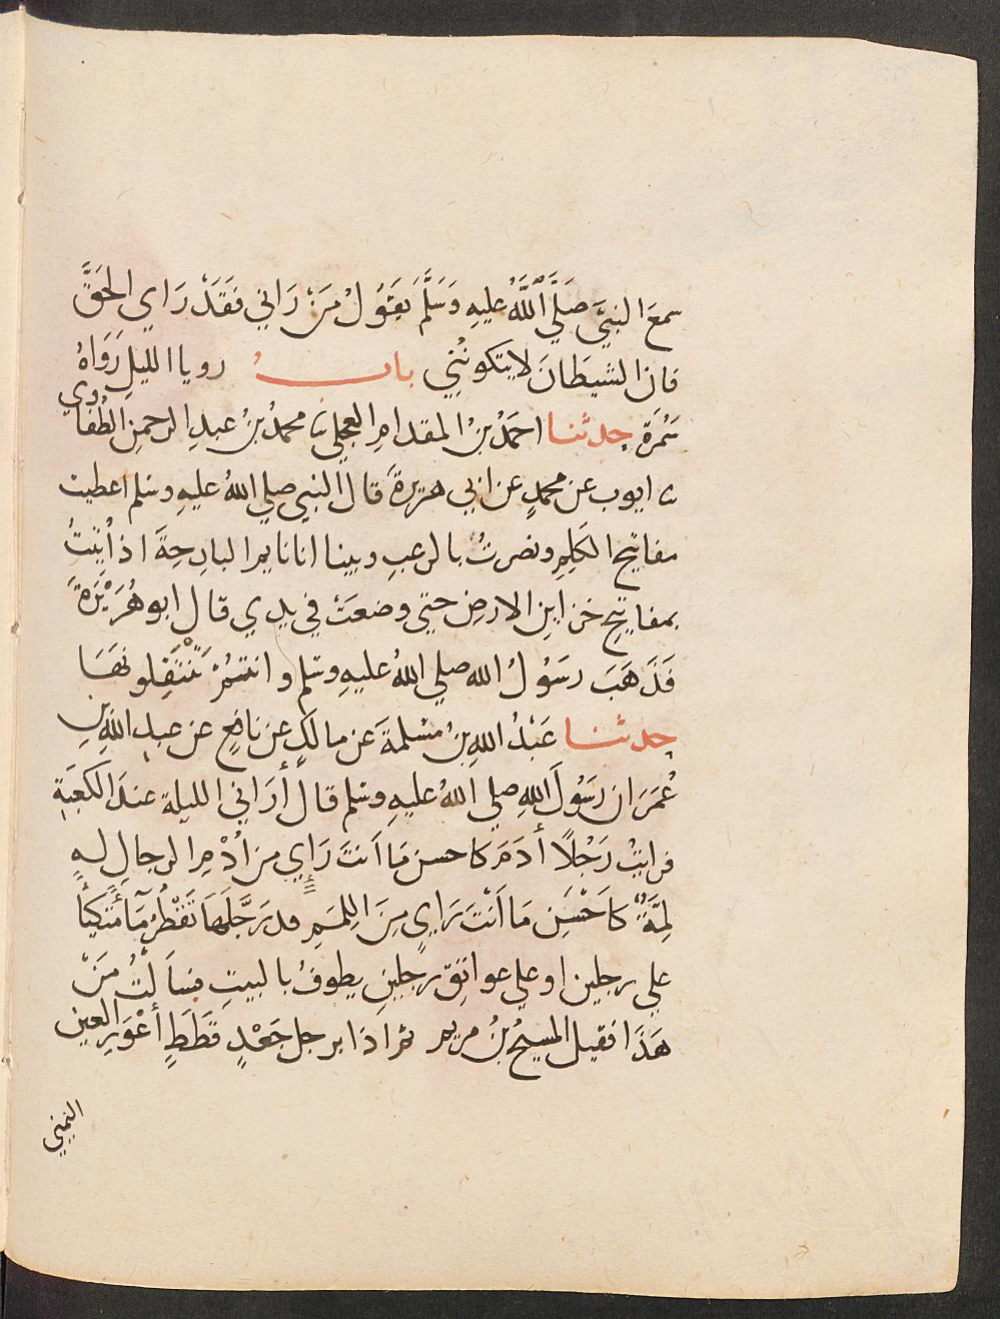 سمعَ النبيَّ صَلَّي اللَّهُ عليهِ وَسَلَّمَ يَقُولُ مَنْ رَاني فَقَدْ رَاي الحَقَّ
فان الشيطَانَ لا يتكونُنِي بابُ رويا الليلِ رَوَاهُ
سَمُرَة حدثنا احمَدُ بنُ المقدامِ العجلي نا محمدُ بنُ عبدِ الرحمنِ الطُفَاوي
نا ايوب عن محمدٍ عن ابي هريرةَ قال النبي صلي اللهُ عليهِ وسلم اعطيت
مفاتيح الكَلِمِ ونصرتُ بالرعبِ وبينا انا نايم البارِحِةَ اذ اُتِيتُ
بمفاتيحِ خزاينِ الارضِ حتي وضعَتْ في يدي قال ابو هُرَيْرَةَ
فَذَهَبَ رسَوُلُ الله صلي اللهُ عليهِ وسلم وانتمُ تَنْتَقِلونهَا
حدثنا عَبْدُ اللهِ بنُ مسْلمةَ عَن مالكٍ عن نافعٍ عن عبدِ اللهِ بنِ
عُمَرَ ان رسَوُلَ اللهِ صلي اللهُ عليهِ وسلم قال أُرَاني الليلة عندَ الكَعبَةِ
فرايتُ رَجُلًا أدَمَ كاحسن مَا اَنتَ رَاي من اُدْمِ الرجالِ لهِ
لِمَّةٌ كاَحْسَنِ مَا اَنْتَ رَايٍ مِنَ اللِمَمِ قد رَجَّلَهَا تَقْطُرُ مَآ مُتَكيًا
علي رجلين او علي عواتِقِ رجلينِ يطوفُ بالبيتِ فسأَلْتُ مَنْ
هَذَا فقيل المسيحُ بنُ مريم ثم اذا برجل جَعْدٍ قَطَطٍ أعْوَرِ العينِ
اليُمني